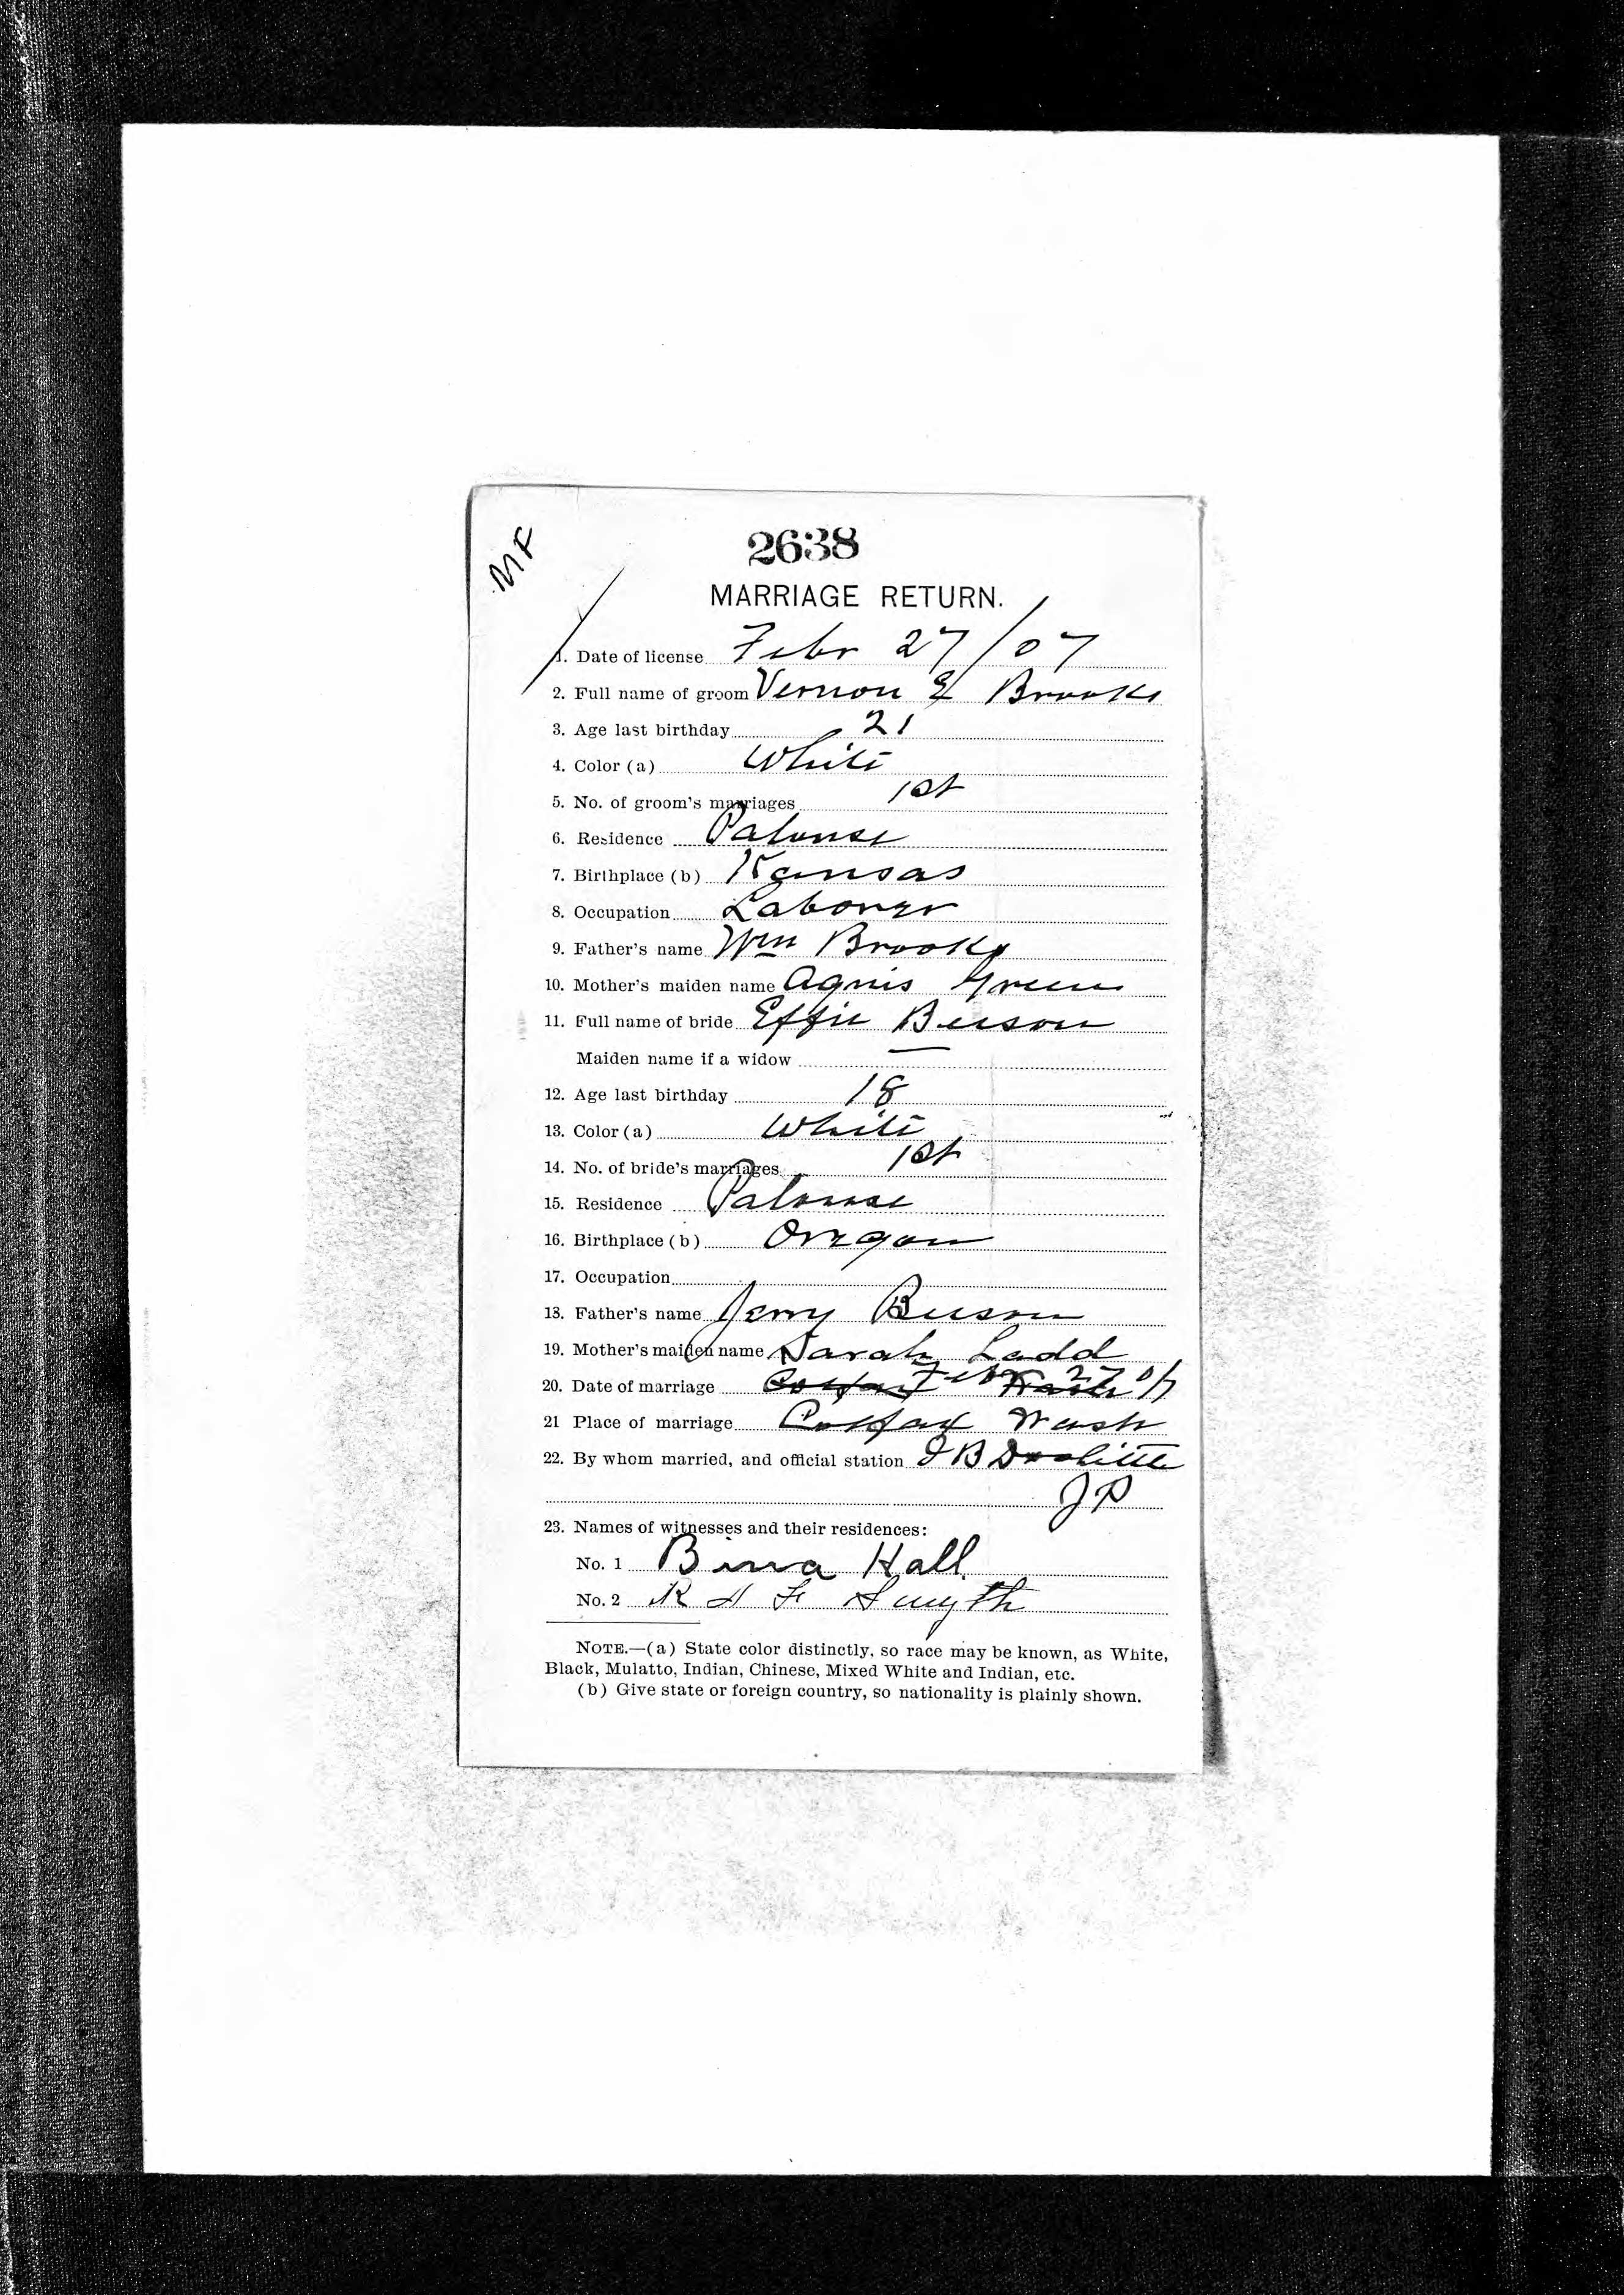 MF
2638
MARRIAGE RETURN.
1. Date of license Febr 27/07
2. Full name of groom Vernon E Brooks
3. Age last birthday 21
4. Color (a) White
5. No. of groom's marriages 1st
6. Residence Palouse
7. Birthplace (b) Kansas
8. Occupation Laborer
9. Father's name Wm Brooks
10. Mother's maiden name Agnis Green
11. Full name of bride Effie Beeson
Maiden name if a widow —
12. Age last birthday 18
13. Color (a) White
14. No. of bride's marriages 1st
15. Residence Palouse
16. Birthplace (b) Oregon
17. Occupation
18. Father's name Jerry Beeson
19. Mother's maiden name Sarah Ladd
20. Date of marriage Colfax Wash Febr 27 07
21 Place of marriage Colfax Wash
22. By whom married, and official station I B Doolittle
J P
23. Names of witnesses and their residences:
No. 1 Hall
No. 2 Smyth
NOTE.—(a) State color distinctly, so race may be known, as White,
Black, Mulatto, Indian, Chinese, Mixed White and Indian, etc.
(b) Give state or foreign country, so nationality is plainly shown.